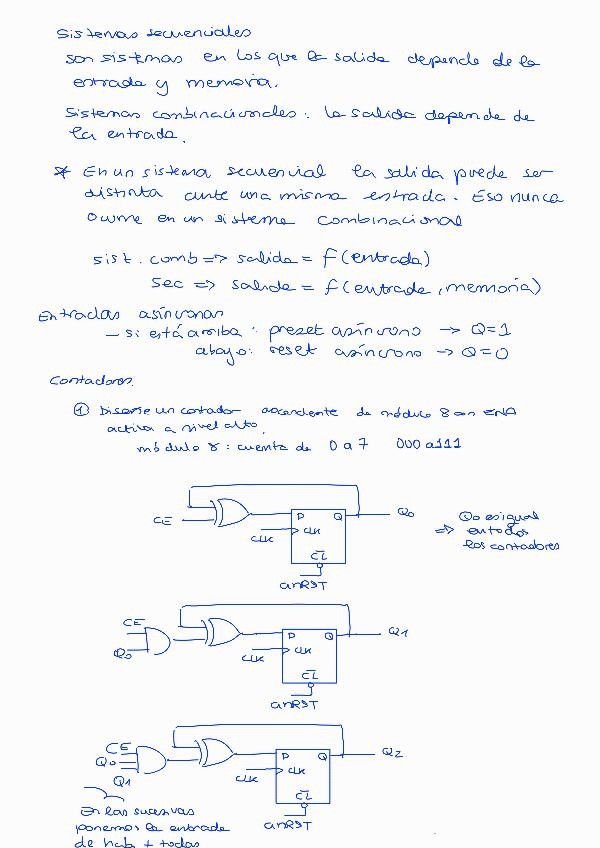 Sistemas secuenciales
son sistemas en los que la salida depende de la
entrada y memoria.
Sistemas combinacionales: la salida depende de
la entrada.
* En un sistema secuencial la salida puede ser
distinta ante una misma entrada. Eso nunca
ocurre en un sistema combinacional
sist. comb => salida = f(entrada)
sec => salida = f(entrada, memoria)
Entradas asíncronas
- si está arriba: preset asíncrono → Q=1
abajo: reset asíncrono → Q=0
Contadores.
① Diseñe un contador ascendente de módulo 8 con ENA
activa a nivel alto.
módulo 8: cuenta de 0 a 7 000 a 111
CE
D Q
CLK
CLK
CL
anRST
Q0
Q0 es igual
=> en todos
los contadores
CE
Q0
D Q
CLK
CLK
CL
anRST
Q1
CE
Q0
Q1
D Q
CLK
CLK
CL
anRST
Q2
En las sucesivas
ponemos la entrada
de hab + todas